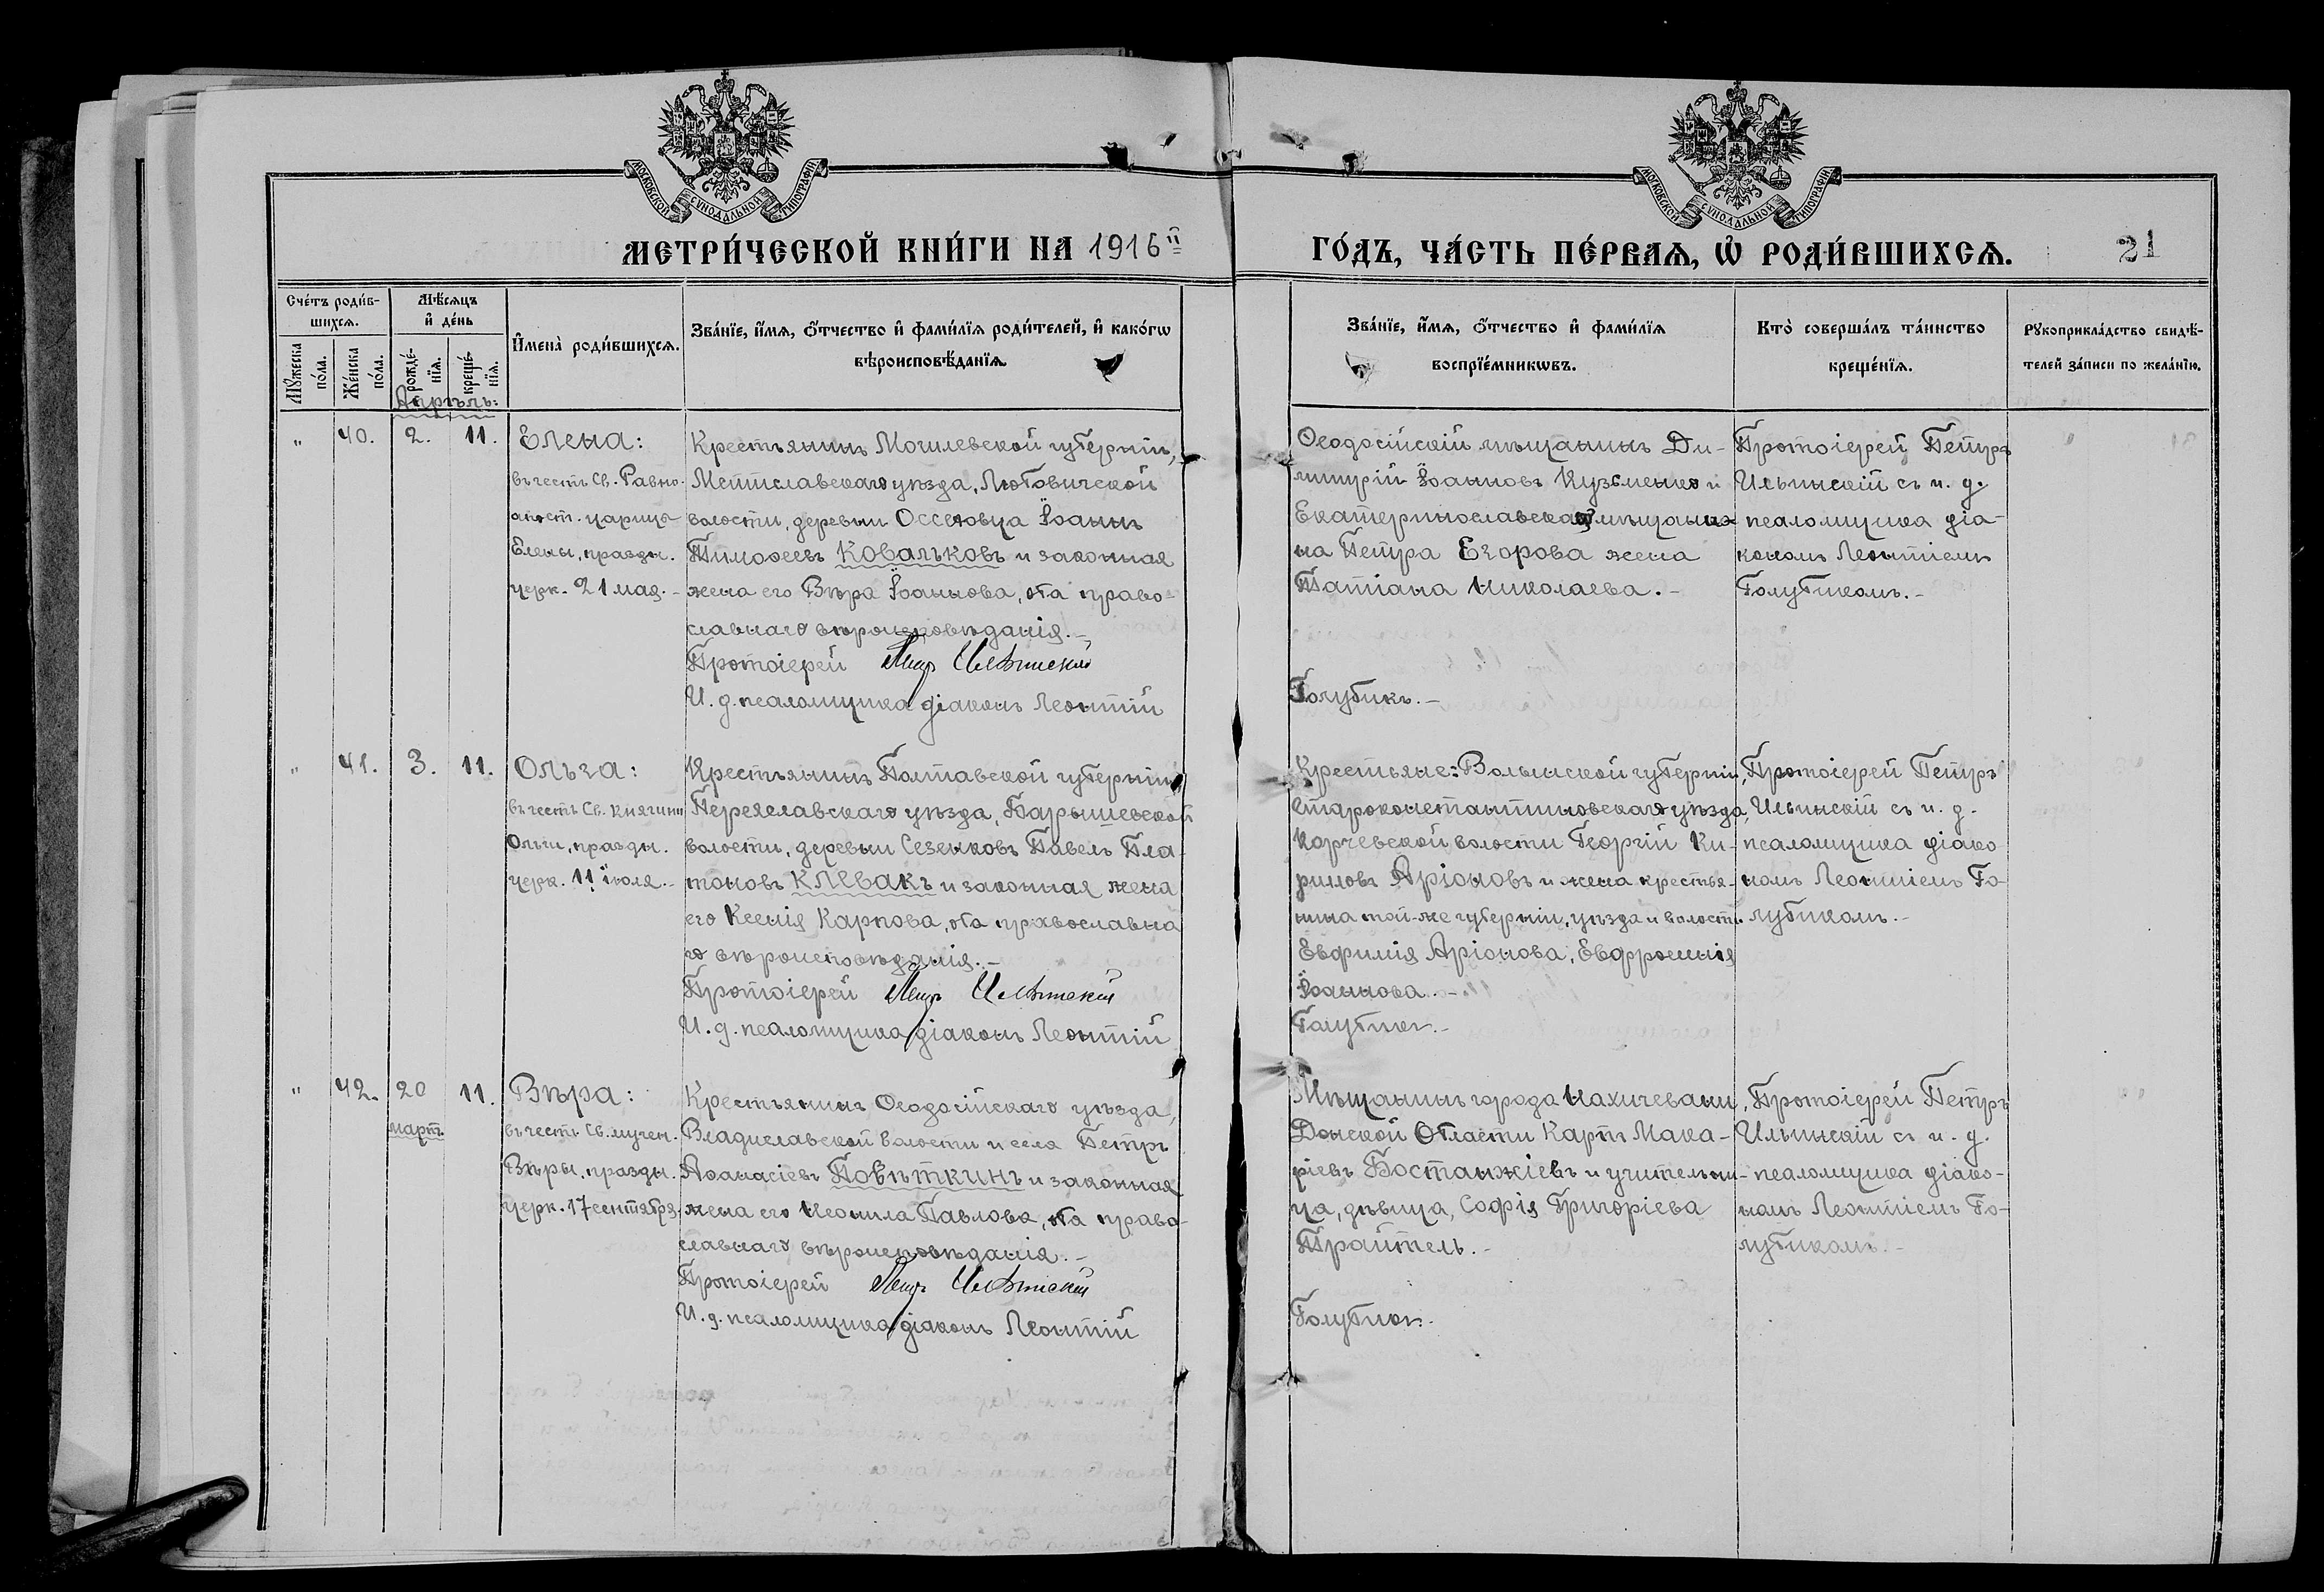 МОСКОВСКОЙ СѴНОДАЛЬНОЙ ТИПОГРАФІИ
МОСКОВСКОЙ СѴНОДАЛЬНОЙ ТИПОГРАФІИ
МЕТРИ́ЧЕСКОЙ КНИ́ГИ НА 1916й
ГО́ДЪ, ЧА́СТЬ ПЕ́РВАЯ, Ѡ҆ РОДИ́ВШИХСѦ.
21
Сче́тъ роди́в-
шихсѧ.
Мѹ́жеска по́ла.
Же́нска по́ла.
Мѣ́сѧцъ
и҆ де́нь
рожде́-
нїѧ.
креще́-
нїѧ.
И҆мена̀ роди́вшихсѧ.
Зва́нїе, и҆́мѧ, ѻ҆́тчество и҆ фами́лїѧ роди́телей, и҆ како́гѡ
вѣроисповѣ́данїѧ.
Зва́нїе, и҆́мѧ, ѻ҆́тчество и҆ фами́лїѧ
воспрїе́мникѡвъ.
Кто̀ соверша́лъ та́инство
креще́нїѧ.
Рꙋкоприкла́дство свидѣ́-
телей за́писи по жела́нїю.
Апрѣль:
" 40. 2. 11.
Елена:
въ честь Св. Равно-
апост. царицы
Елены, праздн.
церк. 21 мая.-
Крестьянинъ Могилевской губерніи,
Мстиславскаго уѣзда, Лютовичской
волости, деревни Ѳоаннъ
Тимоѳеевъ Ковальковъ и законная
жена его Вѣра Іоаннова, оба право-
славнаго вѣроисповѣданія.-
Протоіерей Петр Ильинскій
И. д. псаломщика діаконъ Леонтій
Ѳеодосійскій мѣщанинъ Ди-
митрій Іоанновъ Кузьменко и
Екатеринославскаго мѣщани-
на Петра Егорова жена
Татіана Николаева.-
Голубикъ.-
Протоіерей Петръ
Ильинскій съ и. д.
псаломщика діа-
кономъ Леонтіемъ
Голубикомъ.-
" 41. 3. 11.
Ольга:
въ честь Св. Княгини
Ольги, праздн.
церк. 11 іюля.-
Крестьянинъ Полтавской губерніи,
Переяславскаго уѣзда, Барышевской
волости, деревни Сезенковъ Павелъ Пла-
тоновъ Клевакъ и законная жена
его Ксенія Карпова, оба православна
го вѣроисповѣданія.-
Протоіерей Петр Ильинскій
И. д. псаломщика діаконъ Леонтій
Крестьяне: Волынской губерніи,
Староконстантиновскаго уѣзда,
Корчевской волости Георгій Ки-
риловъ Аріоновъ и жена крестья-
нина той-же губерніи, уѣзда и волости
Евфимія Аріонова, Евфросинія
Іоаннова.-
Голубикъ.-
Протоіерей Петръ
Ильинскій съ и. д.
псаломщика діако
номъ Леонтіемъ Го-
лубикомъ.-
" 42. 20 11.
март.
Вѣра:
въ честь Св. мучен.
Вѣры, праздн.
церк. 17 сентября.
Крестьянинъ Ѳеодосійскаго уѣзда,
Владиславской волости и села Петръ
Аѳанасіевъ Повѣткинъ и законная
жена его Неонила Павлова, оба право-
славнаго вѣроисповѣданія.-
Протоіерей Петр Ильинскій
И. д. псаломщика діаконъ Леонтій
Мѣщанинъ города Нахичевани,
Донской Области Карпъ Мака-
ріевъ Бостанжіевъ и учительни-
ца, дѣвица, Софія Григоріева
Трайтель.-
Голубикъ.
Протоіерей Петръ
Ильинскій съ и. д.
псаломщика діако-
номъ Леонтіемъ Го-
лубикомъ.-